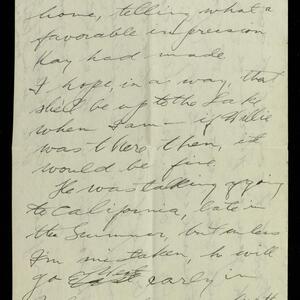 home, telling what a
favorable impression
Kay had made.
I hope, in a way, that
she'll be up to the Lake
when I am — if Willie
was there then, it
would be fine.
He was talking of going
to California, late in
the Summer, but unless
I'm mistaken, he will
go East early in